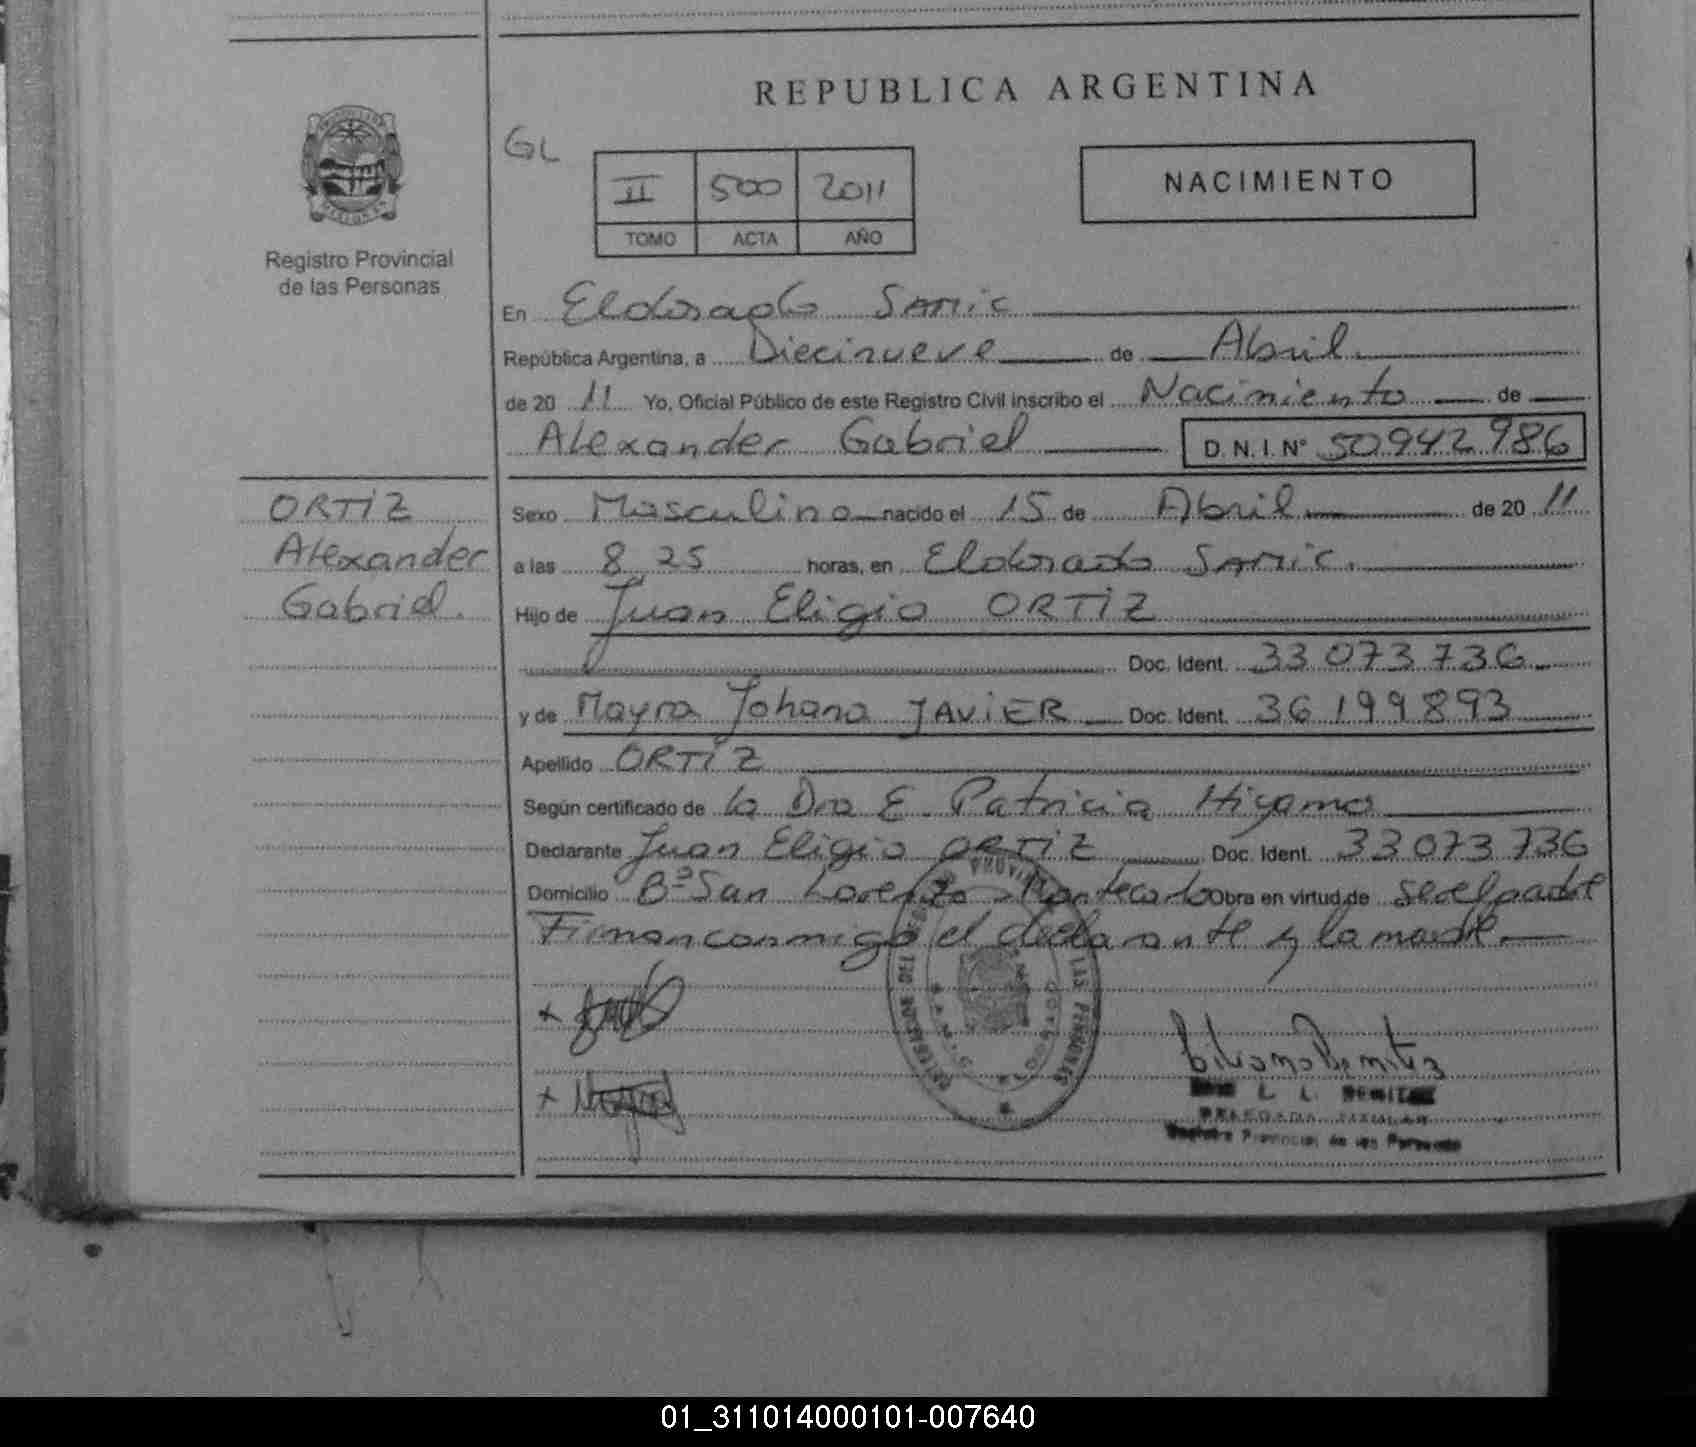 REPUBLICA ARGENTINA
GL
II 500 2011
TOMO ACTA AÑO
NACIMIENTO
Registro Provincial
de las Personas
En Eldorado SAMIC
República Argentina, a Diecinueve de Abril
de 20 11 Yo, Oficial Público de este Registro Civil inscribo el Nacimiento de
Alexander Gabriel D.N.I. N° 50942986
ORTIZ
Alexander
Gabriel.
Sexo Masculino nacido el 15 de Abril de 20 11
a las 8,25 horas, en Eldorado SAMIC.
Hijo de Juan Eligio ORTIZ
Doc. Ident. 33 073 736
y de Mayra Johana JAVIER Doc. Ident. 36 199 893
Apellido ORTIZ
Según certificado de la Dra E. Patricia Higama
Declarante Juan Eligio ORTIZ Doc. Ident. 33 073 736
Domicilio Bº San Lorenzo - Montecarlo Obra en virtud de ser el padre
Firman conmigo el declarante y la madre
DELEGADA TITULAR
Registro Provincial de las Personas
01_311014000101-007640